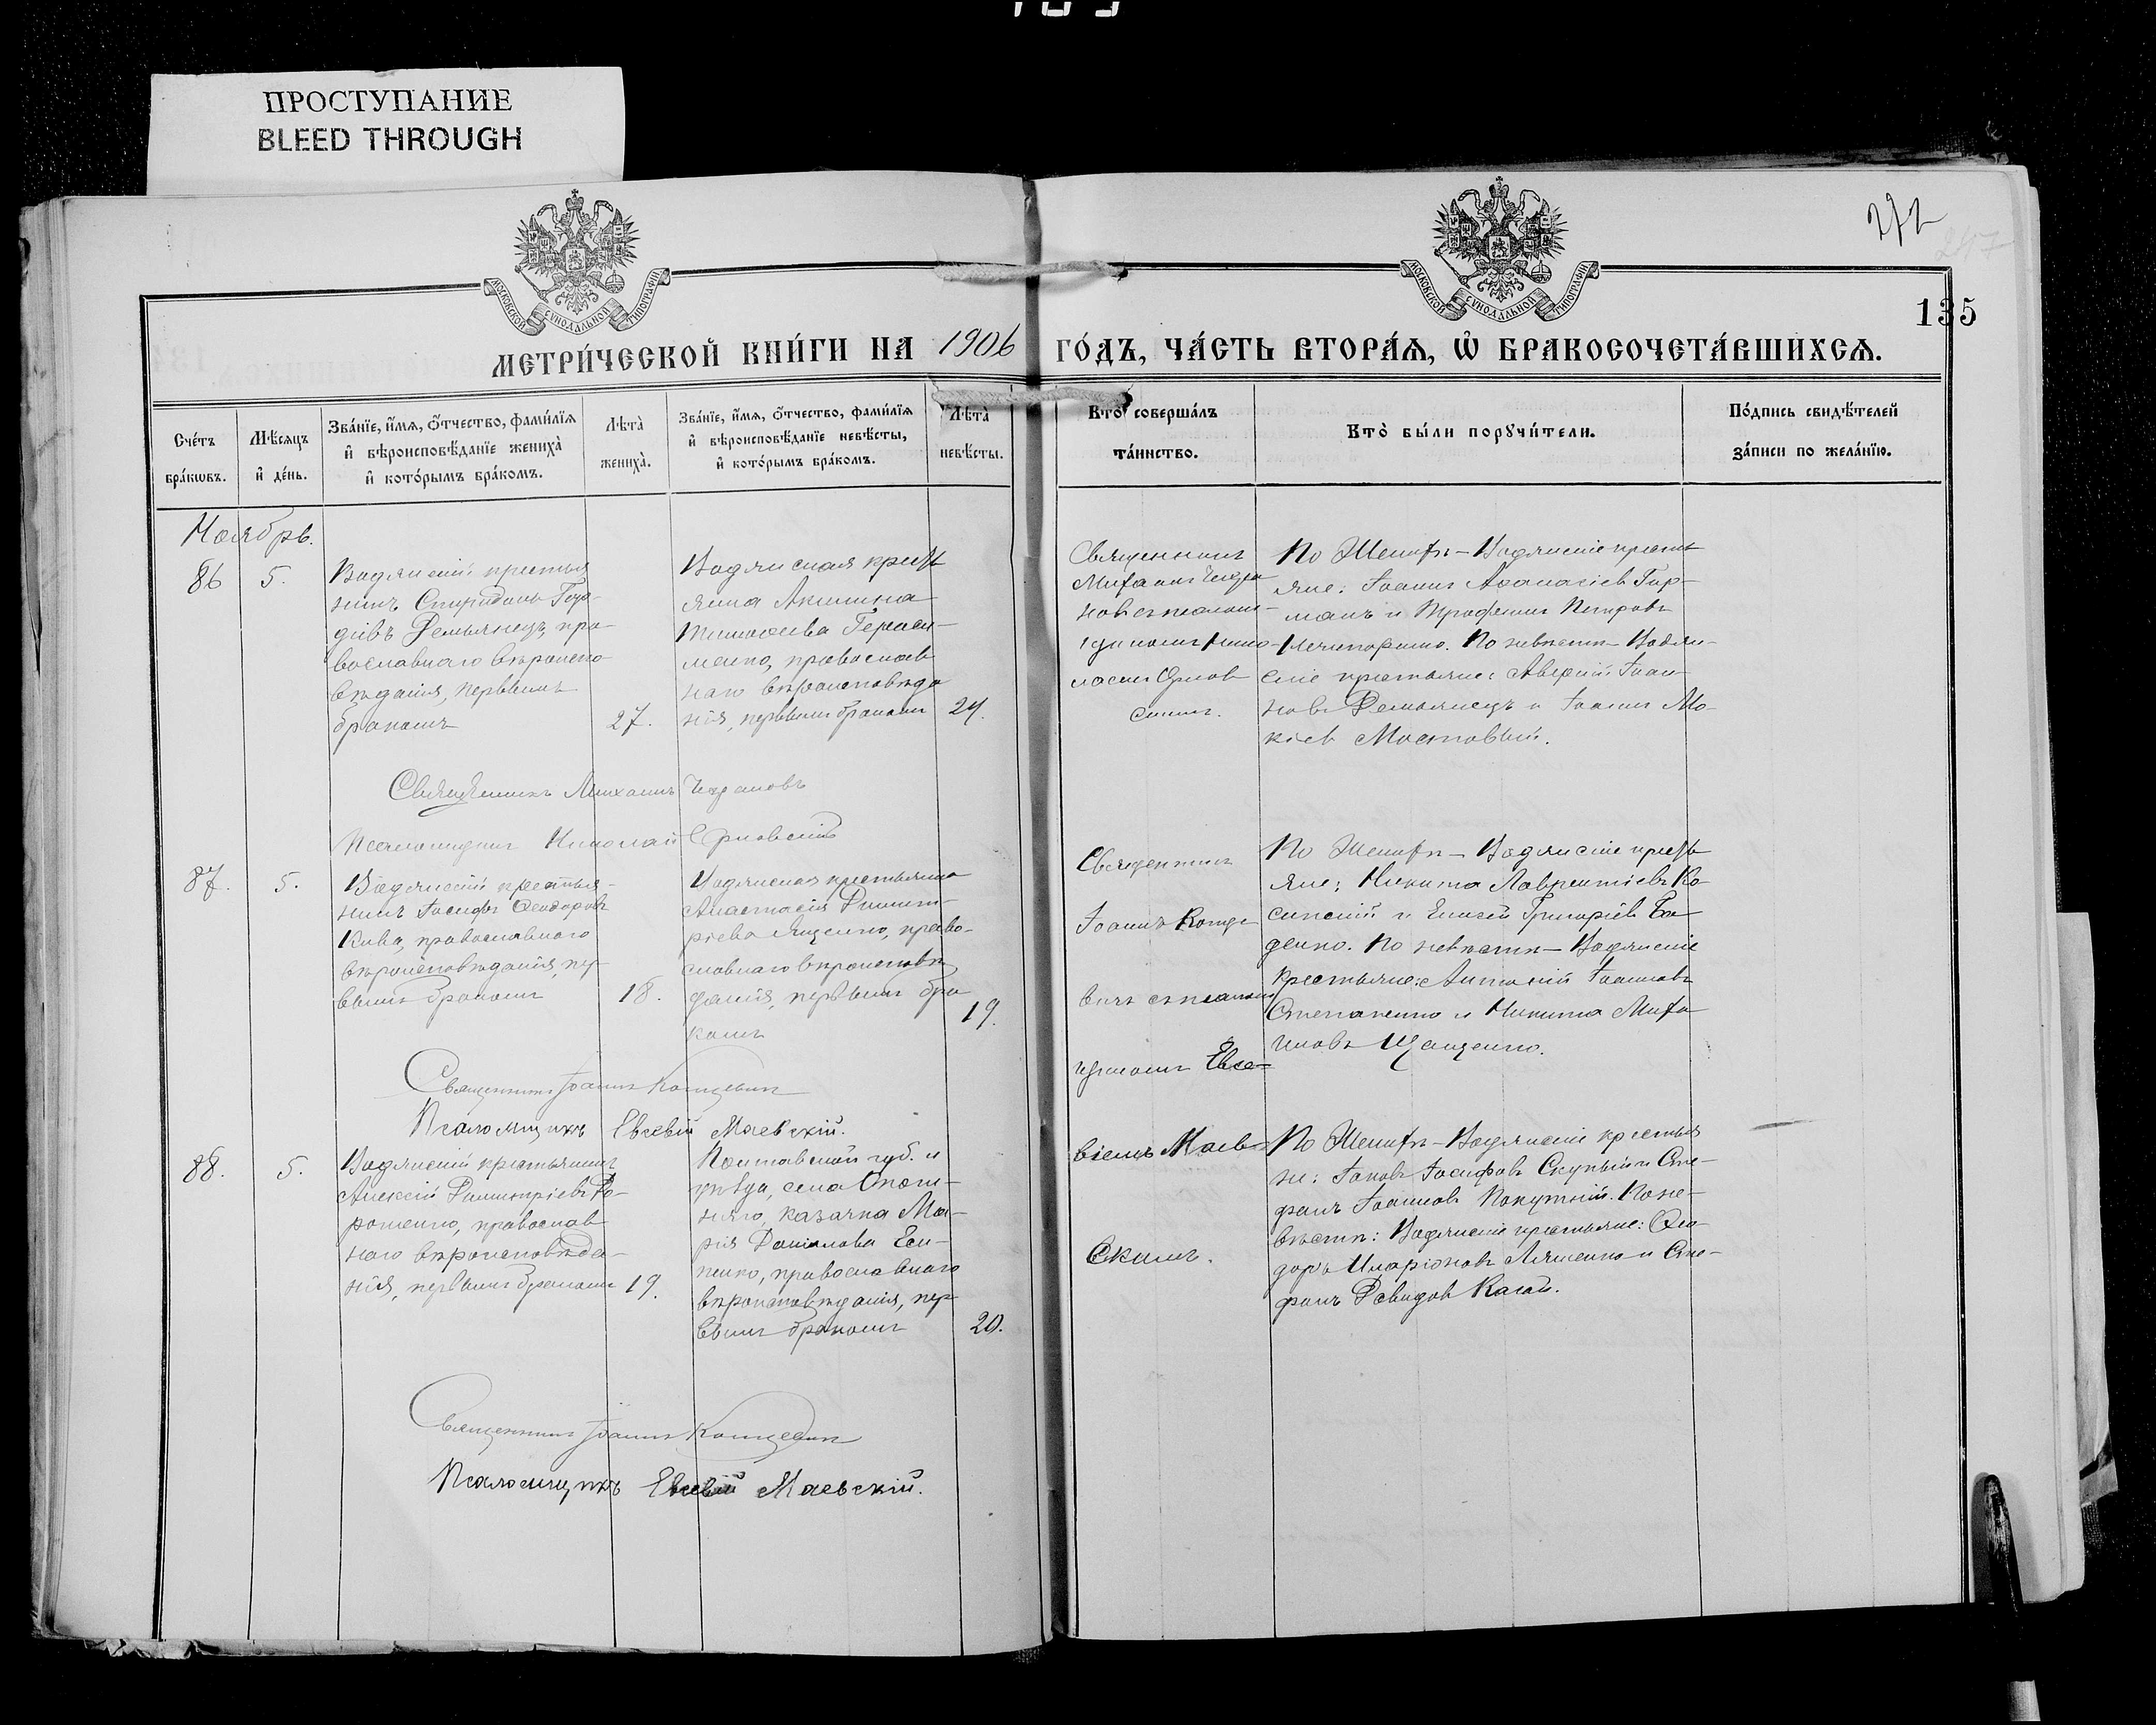 ПРОСТУПАНИЕ
BLEED THROUGH
272
247
135
МОСКОВСКОЙ СѴНОДАЛЬНОЙ ТИПОГРАФІИ
МОСКОВСКОЙ СѴНОДАЛЬНОЙ ТИПОГРАФІИ
МЕТРИ́ЧЕСКОЙ КНИ́ГИ НА 1906 ГО́ДЪ, ЧА́СТЬ ВТОРА́Ѧ, Ѡ҆ БРАКОСОЧЕТА́ВШИХСѦ.
Сче́тъ бра́кѡвъ.
Мѣ́сѧцъ и҆ де́нь.
Зва́нїе, и҆́мѧ, ѻ҆́тчество, фами́лїѧ
и҆ вѣроисповѣ́данїе жениха̀
и҆ кото́рымъ бра́комъ.
Лѣта̀ жениха̀.
Зва́нїе, и҆́мѧ, ѻ҆́тчество, фами́лїѧ
и҆ вѣроисповѣ́данїе невѣ́сты,
и҆ кото́рымъ бра́комъ.
Лѣта̀ невѣ́сты.
Кто̀ соверша́лъ
та́инство.
Кто̀ бы́ли порꙋчи́тели.
По́дпись свидѣ́телей
за́писи по жела́нїю.
Ноябрь.
86
5.
Водянскій крестья
нинъ Спиридонъ
Демьянецъ, пра-
вославнаго вѣроиспо
вѣданія, первымъ
бракомъ
27.
Водянская крестъ
янка Акилина
Тимоѳеева Гераси-
менко, православ
наго вѣроисповѣда
нія, первымъ бракомъ
24.
Священникъ
Михаилъ Чехра
новъ съ псалом-
щикомъ Нико-
лаемъ Орлов
скимъ.
По Женихѣ – Водянскіе кресть
яне: Іоаннъ Аѳанасіевъ Гор-
манъ и Трофимъ Петровъ
По невѣстѣ – Водян-
скіе крестьяне: Аверкій Іоан-
новъ Демьянецъ и Іоаннъ Мо-
кіевъ Мостовый.
Священникъ Михаилъ Чехрановъ
Псаломщикъ Николай Орловскій
87.
5.
Водянскій крестья-
нинъ Іосифъ Ѳеодоровъ
Кива, православнаго
вѣроисповѣданія, пер-
вымъ бракомъ
18.
Водянская крестьянка
Анастасія Димит-
ріева Ященко, право-
славнаго вѣроисповѣ
данія, первымъ бра
комъ
19.
Священникъ
Іоаннъ Конце
вичъ съ псалом
щикомъ Евсе-
віемъ Маев
скимъ.
По Женихѣ – Водянскіе кресть
яне: Никита Лаврентіевъ Ко
синскій и Елисей Григоріевъ
денко. По невѣстѣ – Водянскіе
крестьяне: Антоній Іоанновъ
Степаненко и Никита Миха
иловъ Ищенко.
Священникъ Іоаннъ Концевичъ
Псаломщикъ Евсевій Маевскій.
88.
5.
Водянскій крестьянинъ
Алексій Димитріевъ До-
рошенко, православ
наго вѣроисповѣда-
нія, первымъ бракомъ
19.
Полтавской губ. и
уѣзда, села Опош-
няго, казачка Ма-
рія Даніилова Еси-
пенко, православнаго
вѣроисповѣданія, пер
вымъ бракомъ
20.
По Женихѣ – Водянскіе крестья
не: Іаковъ Іосифовъ Скупый и Сте-
фанъ Іоанновъ Покутній. По не-
вѣстѣ: Водянскіе крестьяне: Ѳео-
доръ Иларіоновъ Ляшенко и Сте-
фанъ Давидовъ Каган.
Священникъ Іоаннъ Концевичъ
Псаломщикъ Евсевій Маевскій.